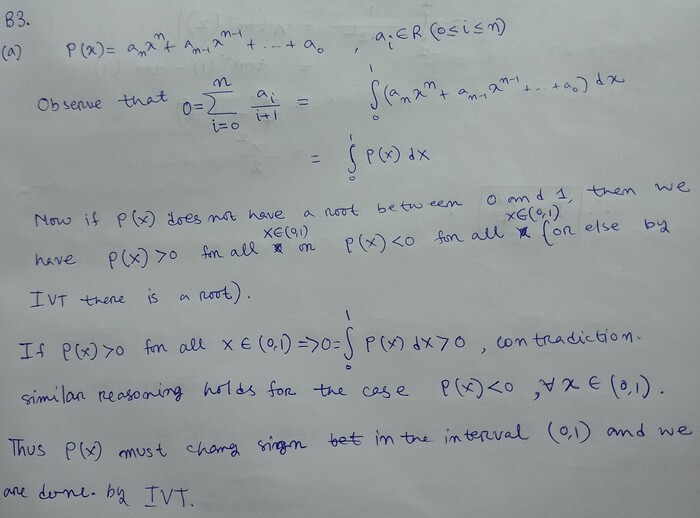 B3.
(a) P(x) = aₙxⁿ + aₙ₋₁xⁿ⁻¹ + ... + a₀ , aᵢ ∈ R (0 ≤ i ≤ n)
Observe that 0 = ∑ᵢ₌₀ⁿ aᵢ/(i+1) = ∫₀¹ (aₙxⁿ + aₙ₋₁xⁿ⁻¹ + ... + a₀) dx
= ∫₀¹ P(x) dx
Now if P(x) does not have a root between 0 and 1, then we
have P(x) > 0 for all x∈(0,1) or P(x) < 0 for all x∈(0,1) (or else by
IVT there is a root).
If P(x) > 0 for all x ∈ (0,1) => 0 = ∫₀¹ P(x) dx > 0 , contradiction.
similar reasoning holds for the case P(x) < 0 , ∀ x ∈ (0,1).
Thus P(x) must chang sign in the interval (0,1) and we
are done. by IVT.